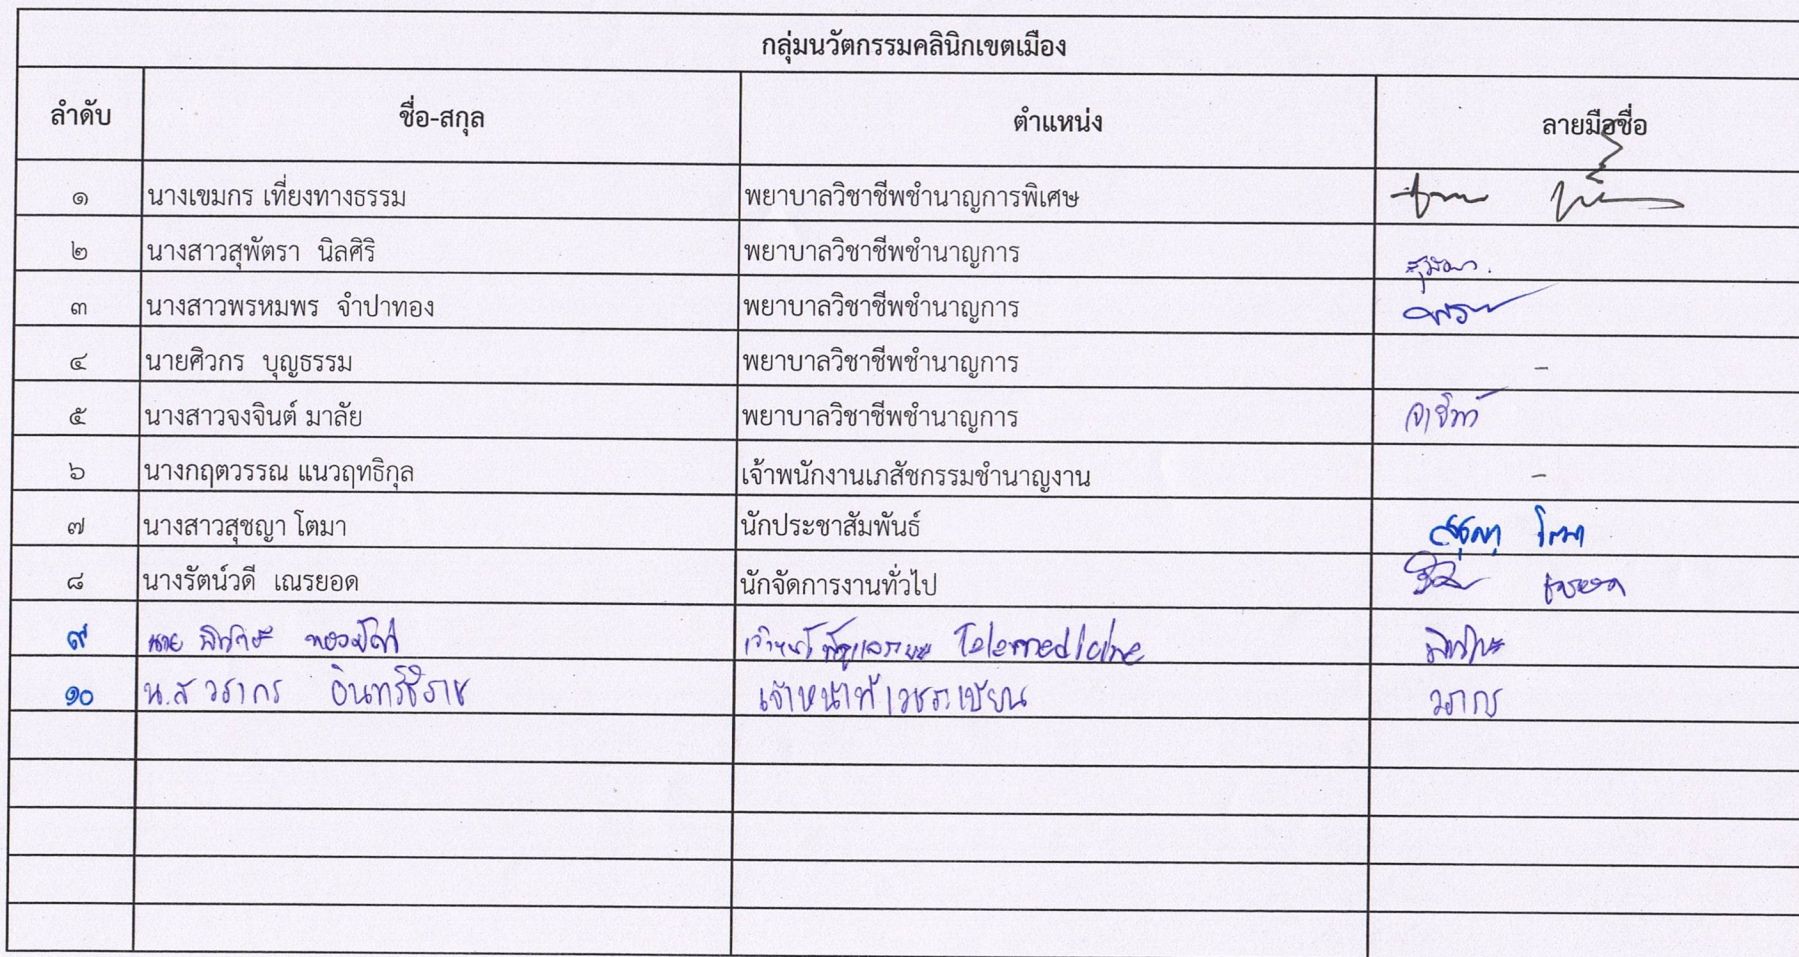 กลุ่มนวัตกรรมคลินิกเขตเมือง
ลำดับ ชื่อ-สกุล ตำแหน่ง ลายมือชื่อ
๑ นางเขมกร เที่ยงทางธรรม พยาบาลวิชาชีพชำนาญการพิเศษ
๒ นางสาวสุพัตรา นิลศิริ พยาบาลวิชาชีพชำนาญการ
๓ นางสาวพรหมพร จำปาทอง พยาบาลวิชาชีพชำนาญการ
๔ นายศิวกร บุญธรรม พยาบาลวิชาชีพชำนาญการ -
๕ นางสาวจงจินต์ มาลัย พยาบาลวิชาชีพชำนาญการ
๖ นางกฤตวรรณ แนวฤทธิกุล เจ้าพนักงานเภสัชกรรมชำนาญงาน -
๗ นางสาวสุชญา โตมา นักประชาสัมพันธ์ สุชญา โตมา
๘ นางรัตน์วดี เณรยอด นักจัดการงานทั่วไป เณรยอด
๙ นาย Telemedicine
๑๐ น.ส วรากร เจ้าหน้าที่เวชระเบียน วรากร